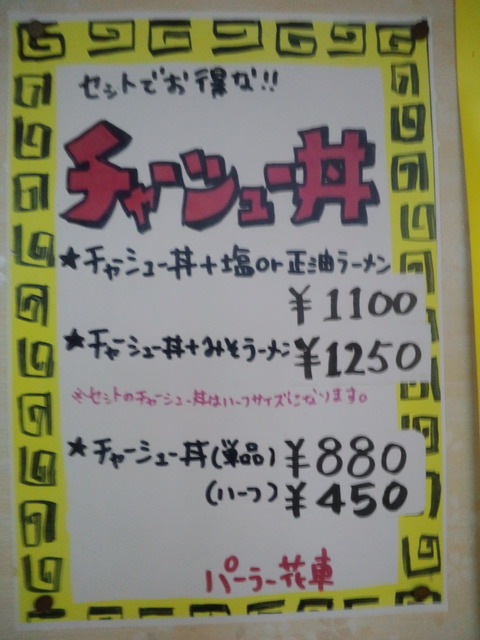 セットでお得な!!
チャーシュー丼
★チャーシュー丼+塩or正油ラーメン
¥1100
★チャーシュー丼+みそラーメン ¥1250
※セットのチャーシュー丼はハーフサイズになります。
★チャーシュー丼(単品) ¥880
(ハーフ) ¥450
パーラー花車